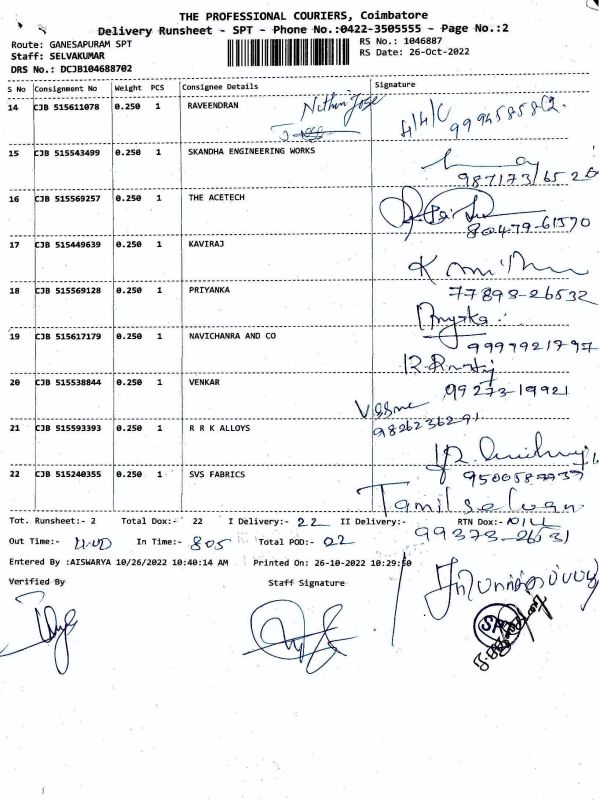 THE PROFESSIONAL COURIERS, Coimbatore
Delivery Runsheet - SPT - Phone No.:0422-3505555 - Page No.:2
Route: GANESAPURAM SPT
RS No.: 1046887
Staff: SELVAKUMAR
RS Date: 26-Oct-2022
DRS No.: DCJB104688702
S No Consignment No Weight PCS Consignee Details Signature
14 CJB 515611078 0.250 1 RAVEENDRAN Nithin Jose
15 CJB 515543499 0.250 1 SKANDHA ENGINEERING WORKS
16 CJB 515569257 0.250 1 THE ACETECH
80479-61570
17 CJB 515449639 0.250 1 KAVIRAJ
18 CJB 515569128 0.250 1 PRIYANKA 77893-26532
19 CJB 515617179 0.250 1 NAVICHANRA AND CO
9999921797
20 CJB 515538844 0.250 1 VENKAR 99273-19921
21 CJB 515593393 0.250 1 R R K ALLOYS 9826236291
22 CJB 515240355 0.250 1 SVS FABRICS
Tamil selvan
Tot. Runsheet:- 2 Total Dox:- 22 I Delivery:- 22 II Delivery:- RTN Dox:- NILL
99373-26531
Out Time:- In Time:- 805 Total POD:- 22
Entered By :AISWARYA 10/26/2022 10:40:14 AM Printed On: 26-10-2022 10:29:50
Verified By Staff Signature